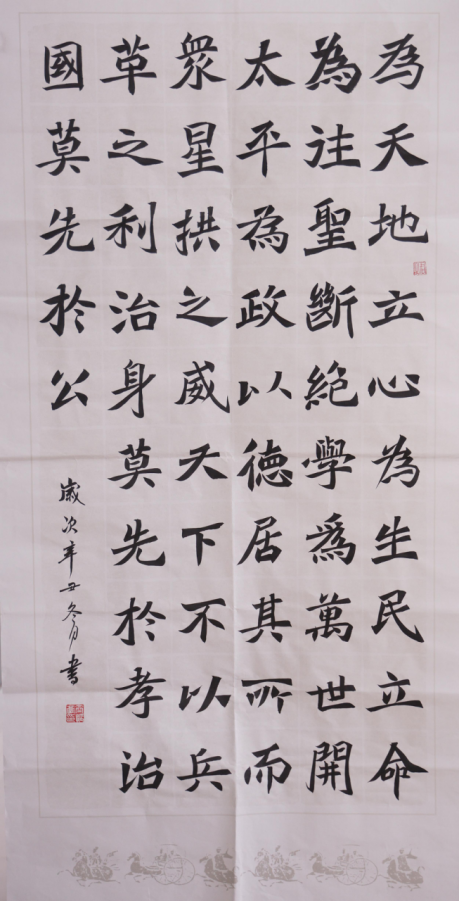 為天地立心為生民立命
為往聖斷絕學為萬世開
太平為政以德居其所而
眾星拱之威天下不以兵
草之利治身莫先於孝治
國莫先於公
歲次辛丑冬月書